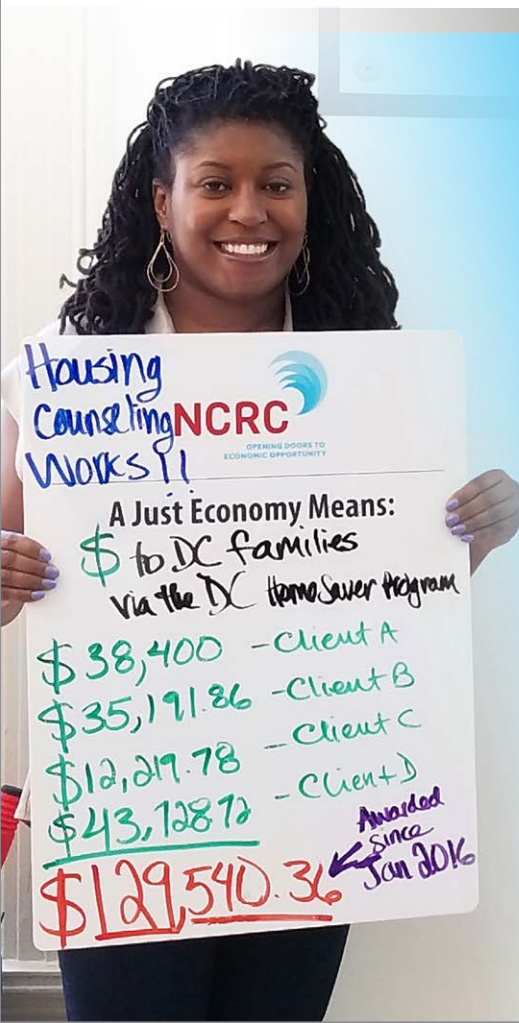 Housing
Counseling
Works!!
NCRC
OPENING DOORS TO
ECONOMIC OPPORTUNITY
A Just Economy Means:
$ to DC families
via the DC HomeSaver Program
$38,400 - Client A
$35,191.86 - Client B
$12,219.78 - Client C
$43,728.72 - Client D
$129,540.36
Awarded
since
Jan 2016